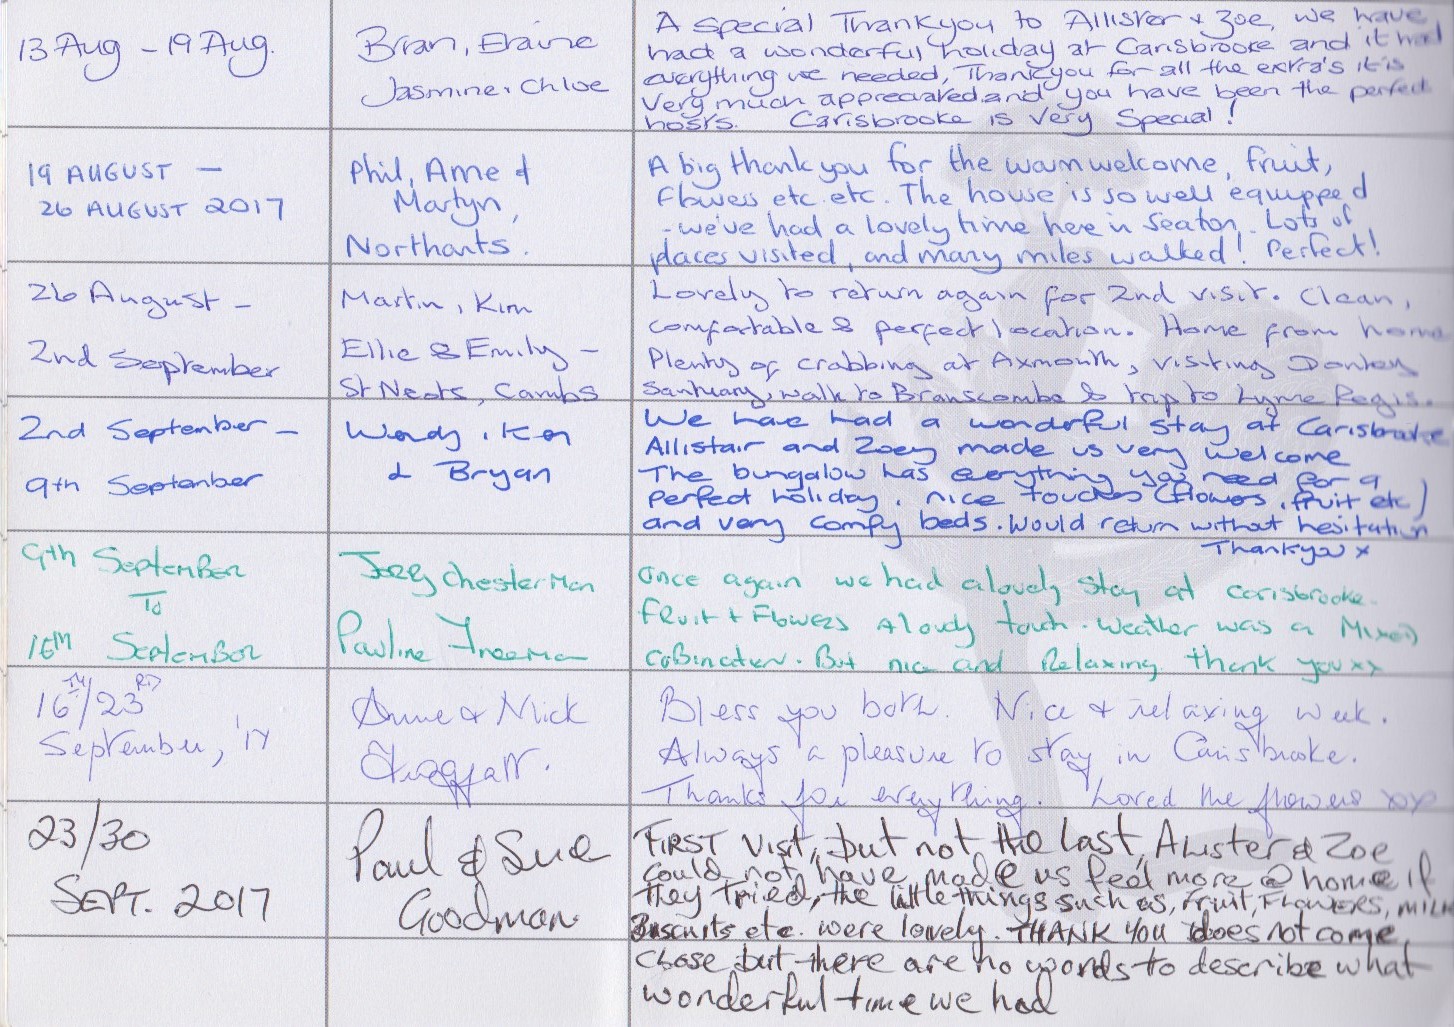 13 Aug - 19 Aug.
Brian, Elaine
Jasmine, Chloe
A special Thankyou to Allister & Zoe, we have
had a wonderful holiday at Carisbrooke and it had
everything we needed, Thankyou for all the extra's it is
very much appreciated and you have been the perfect
hosts. Carisbrooke is Very Special!
19 AUGUST -
26 AUGUST 2017
Phil, Anne &
Martyn,
Northants.
A big thank you for the warm welcome, fruit,
flowers etc. etc. The house is so well equipped
- we've had a lovely time here in Seaton. Lots of
places visited, and many miles walked! Perfect!
26 August -
2nd September
Martin, Kim
Ellie & Emily -
St Neots, Cambs
Lovely to return again for 2nd visit. Clean,
comfortable & perfect location. Home from home
Plenty of crabbing at Axmouth, visiting Donkey
Santuary, walk to Branscombe & trip to Lyme Regis.
2nd September -
9th September
Wendy, Ken
& Bryan
We have had a wonderful stay at Carisbrooke
Allistair and Zoey made us very welcome
The bungalow has everything you need for a
perfect holiday, nice touches (flowers, fruit etc)
and very comfy beds. Would return without hesitation
Thankyou x
9th September
To
16th September
Chesterman
Pauline Freeman
Once again we had a lovely stay at carisbrooke.
Fruit + Flowers A lovely touch. Weather was a Mixed
cobination. But nice and Relaxing. thank you xx
16TH/23RD
September, '17
Anne & Mick
Bless you both. Nice & relaxing week.
Always a pleasure to stay in Carisbrooke.
Thanks for everything. Loved the flowers xxx
23/30
SEPT. 2017
Paul & Sue
Goodman
FIRST Visit, but not the last, Alister & Zoe
could not have made us feel more @ home if
they tried, the little things such as, fruit, FLOWERS, MILK
Biscuits etc. were lovely. THANK YOU does not come
close but there are no words to describe what
wonderful time we had